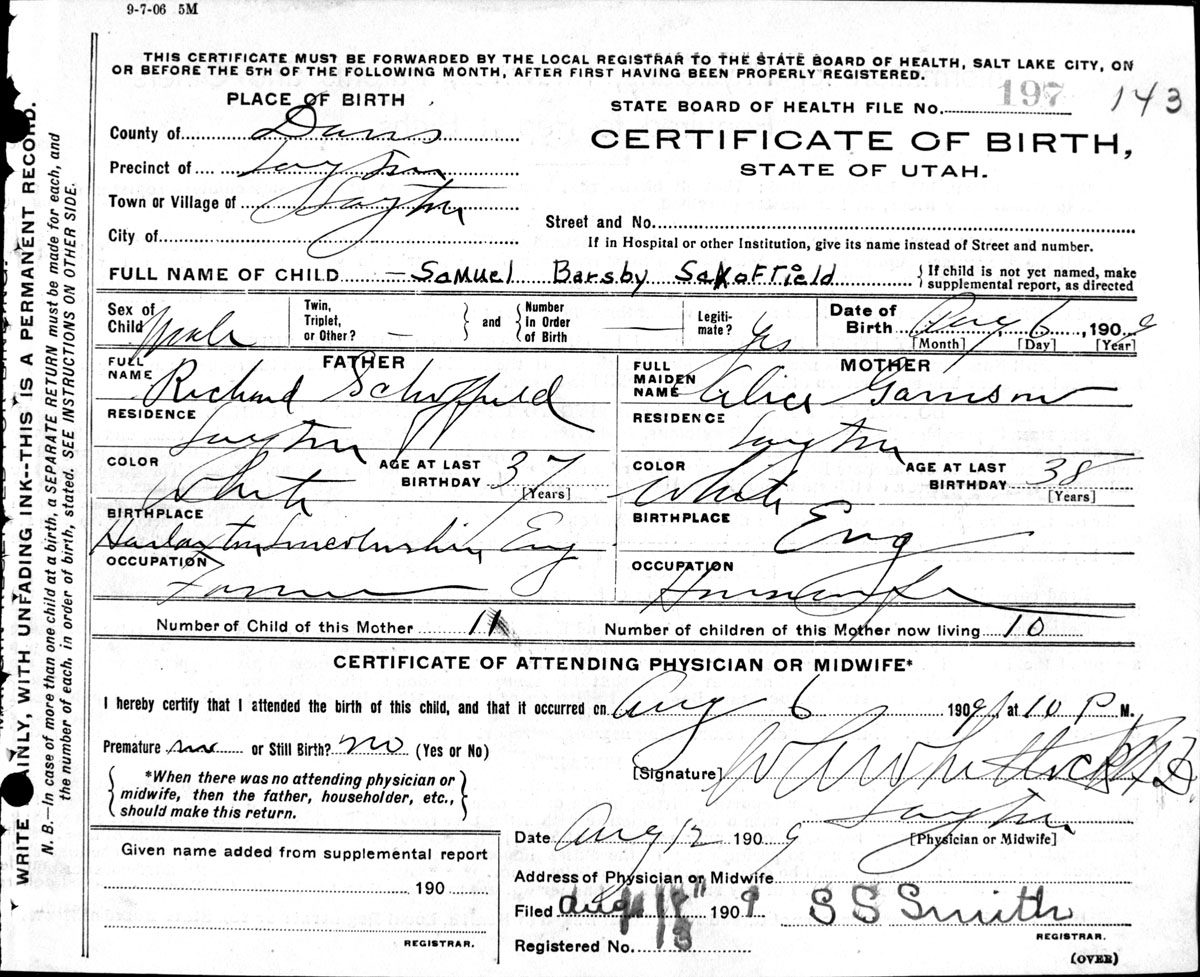 9-7-06 5M
THIS CERTIFICATE MUST BE FORWARDED BY THE LOCAL REGISTRAR TO THE STATE BOARD OF HEALTH, SALT LAKE CITY, ON
OR BEFORE THE 5TH OF THE FOLLOWING MONTH, AFTER FIRST HAVING BEEN PROPERLY REGISTERED.
PLACE OF BIRTH
STATE BOARD OF HEALTH FILE No. 197 143
County of Davis
CERTIFICATE OF BIRTH,
Precinct of Layton
STATE OF UTAH.
Town or Village of Layton
Street and No.
City of
If in Hospital or other Institution, give its name instead of Street and number.
FULL NAME OF CHILD - Samuel Barsby
If child is not yet named, make
supplemental report, as directed
Sex of
Child Male
Twin,
Triplet,
or Other? -
and
Number
in Order
of Birth -
Legiti-
mate? Yes
Date of
Birth Aug 6, 1909
[Month] [Day] [Year]
FATHER
FULL
NAME Richard Schoffield
RESIDENCE
Layton
COLOR
White
AGE AT LAST
BIRTHDAY 37
[Years]
BIRTHPLACE
Harlaxton, Lincolnshire, Eng
OCCUPATION
Farmer
MOTHER
FULL
MAIDEN
NAME Alice Garrison
RESIDENCE
Layton
COLOR
White
AGE AT LAST
BIRTHDAY 38
[Years]
BIRTHPLACE
Eng
OCCUPATION
Housewife
Number of Child of this Mother 11
Number of children of this Mother now living 10
CERTIFICATE OF ATTENDING PHYSICIAN OR MIDWIFE*
I hereby certify that I attended the birth of this child, and that it occurred on Aug 6 1909, at 10 P M.
Premature no or Still Birth? no (Yes or No)
*When there was no attending physician or
midwife, then the father, householder, etc.,
should make this return.
[Signature] Whitlock MD
Layton
[Physician or Midwife]
Date Aug 12 1909
Address of Physician or Midwife
Filed Aug 1909 S S Smith
REGISTRAR.
Registered No.
(OVER)
Given name added from supplemental report
190
REGISTRAR.
WRITE PLAINLY, WITH UNFADING INK--THIS IS A PERMANENT RECORD.
N. B.—In case of more than one child at a birth, a SEPARATE RETURN must be made for each, and
the number of each, in order of birth, stated. SEE INSTRUCTIONS ON OTHER SIDE.